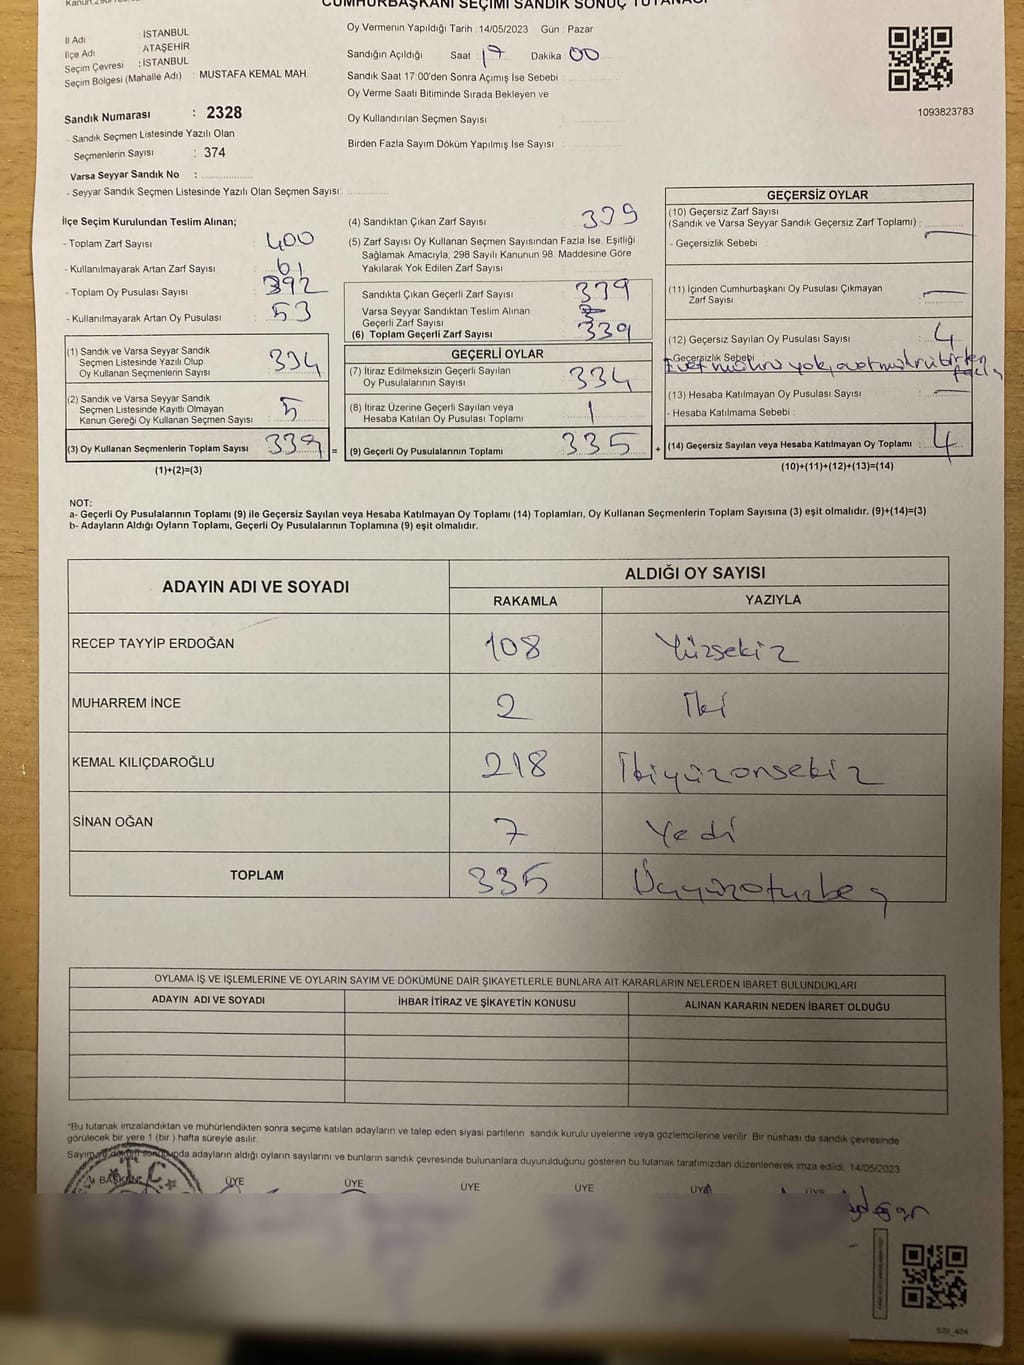 CUMHURBAŞKANI SEÇİMİ SANDIK SONUÇ TUTANAĞI
İl Adı : İSTANBUL
İlçe Adı : ATAŞEHİR
Seçim Çevresi : İSTANBUL
Seçim Bölgesi (Mahalle Adı) : MUSTAFA KEMAL MAH.
Sandık Numarası : 2328
- Sandık Seçmen Listesinde Yazılı Olan
Seçmenlerin Sayısı : 374
Varsa Seyyar Sandık No :
- Seyyar Sandık Seçmen Listesinde Yazılı Olan Seçmen Sayısı:
Oy Vermenin Yapıldığı Tarih : 14/05/2023 Gün : Pazar
Sandığın Açıldığı Saat 17 Dakika 00
Sandık Saat 17:00'den Sonra Açımış İse Sebebi
Oy Verme Saati Bitiminde Sırada Bekleyen ve
Oy Kullandırılan Seçmen Sayısı
Birden Fazla Sayım Döküm Yapılmış İse Sayısı
1093823783
İlçe Seçim Kurulundan Teslim Alınan;
- Toplam Zarf Sayısı : 400
- Kullanılmayarak Artan Zarf Sayısı : 61
- Toplam Oy Pusulası Sayısı : 392
- Kullanılmayarak Artan Oy Pusulası : 53
(1) Sandık ve Varsa Seyyar Sandık
Seçmen Listesinde Yazılı Olup
Oy Kullanan Seçmenlerin Sayısı : 334
(2) Sandık ve Varsa Seyyar Sandık
Seçmen Listesinde Kayıtlı Olmayan
Kanun Gereği Oy Kullanan Seçmen Sayısı : 5
(3) Oy Kullanan Seçmenlerin Toplam Sayısı : 339
(1)+(2)=(3)
(4) Sandıktan Çıkan Zarf Sayısı : 339
(5) Zarf Sayısı Oy Kullanan Seçmen Sayısından Fazla İse, Eşitliği
Sağlamak Amacıyla; 298 Sayılı Kanunun 98. Maddesine Göre
Yakılarak Yok Edilen Zarf Sayısı
Sandıkta Çıkan Geçerli Zarf Sayısı : 339
Varsa Seyyar Sandıktan Teslim Alınan
Geçerli Zarf Sayısı
(6) Toplam Geçerli Zarf Sayısı 339
GEÇERLİ OYLAR
(7) İtiraz Edilmeksizin Geçerli Sayılan
Oy Pusulalarının Sayısı : 334
(8) İtiraz Üzerine Geçerli Sayılan veya
Hesaba Katılan Oy Pusulası Toplamı : 1
= (9) Geçerli Oy Pusulalarının Toplamı : 335
GEÇERSİZ OYLAR
(10) Geçersiz Zarf Sayısı
(Sandık ve Varsa Seyyar Sandık Geçersiz Zarf Toplamı) :
- Geçersizlik Sebebi :
(11) İçinden Cumhurbaşkanı Oy Pusulası Çıkmayan
Zarf Sayısı
(12) Geçersiz Sayılan Oy Pusulası Sayısı : 4
- Geçersizlik Sebebi
Evet mührü yok, evet mührü birden fazla
(13) Hesaba Katılmayan Oy Pusulası Sayısı
- Hesaba Katılmama Sebebi :
+ (14) Geçersiz Sayılan veya Hesaba Katılmayan Oy Toplamı : 4
(10)+(11)+(12)+(13)=(14)
NOT:
a- Geçerli Oy Pusulalarının Toplamı (9) ile Geçersiz Sayılan veya Hesaba Katılmayan Oy Toplamı (14) Toplamları, Oy Kullanan Seçmenlerin Toplam Sayısına (3) eşit olmalıdır. (9)+(14)=(3)
b- Adayların Aldığı Oyların Toplamı, Geçerli Oy Pusulalarının Toplamına (9) eşit olmalıdır.
ADAYIN ADI VE SOYADI ALDIĞI OY SAYISI
RAKAMLA YAZIYLA
RECEP TAYYİP ERDOĞAN 108 Yüzsekiz
MUHARREM İNCE 2 İki
KEMAL KILIÇDAROĞLU 218 İkiyüzonsekiz
SİNAN OĞAN 7 Yedi
TOPLAM 335 Üçyüzotuzbeş
OYLAMA İŞ VE İŞLEMLERİNE VE OYLARIN SAYIM VE DÖKÜMÜNE DAİR ŞİKAYETLERLE BUNLARA AİT KARARLARIN NELERDEN İBARET BULUNDUKLARI
ADAYIN ADI VE SOYADI İHBAR İTİRAZ VE ŞİKAYETİN KONUSU ALINAN KARARIN NEDEN İBARET OLDUĞU
*Bu tutanak imzalandıktan ve mühürlendikten sonra seçime katılan adayların ve talep eden siyasi partilerin sandık kurulu üyelerine veya gözlemcilerine verilir. Bir nüshası da sandık çevresinde
görülecek bir yere 1 (bir ) hafta süreyle asılır.
Sayım ve döküm sonucunda adayların aldığı oyların sayılarını ve bunların sandık çevresinde bulunanlara duyurulduğunu gösteren bu tutanak tarafımızdan düzenlenerek imza edildi. 14/05/2023
T.C.
BAŞKAN ÜYE ÜYE ÜYE ÜYE ÜYE ÜYE